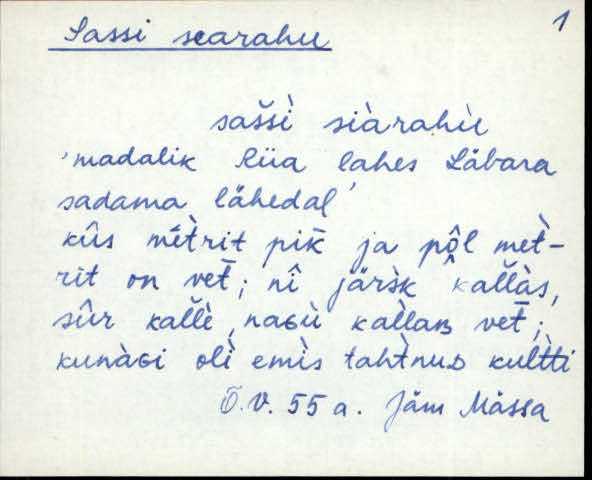 1
Sassi searahu
sašši̇̀ siàrahù
'madalik Riia lahes Läbara
sadama lähedal'
kûs mètrit pik̄ ja pôl met̀-
rit on vet̄; nî järs̀k kallàs,
sûr kallè, naɢù kallàʙ vet̄;
kunàɢi olì emìs tahtnuᴅ kult̀ti
Õ.V. 55 a. Jäm Mässa